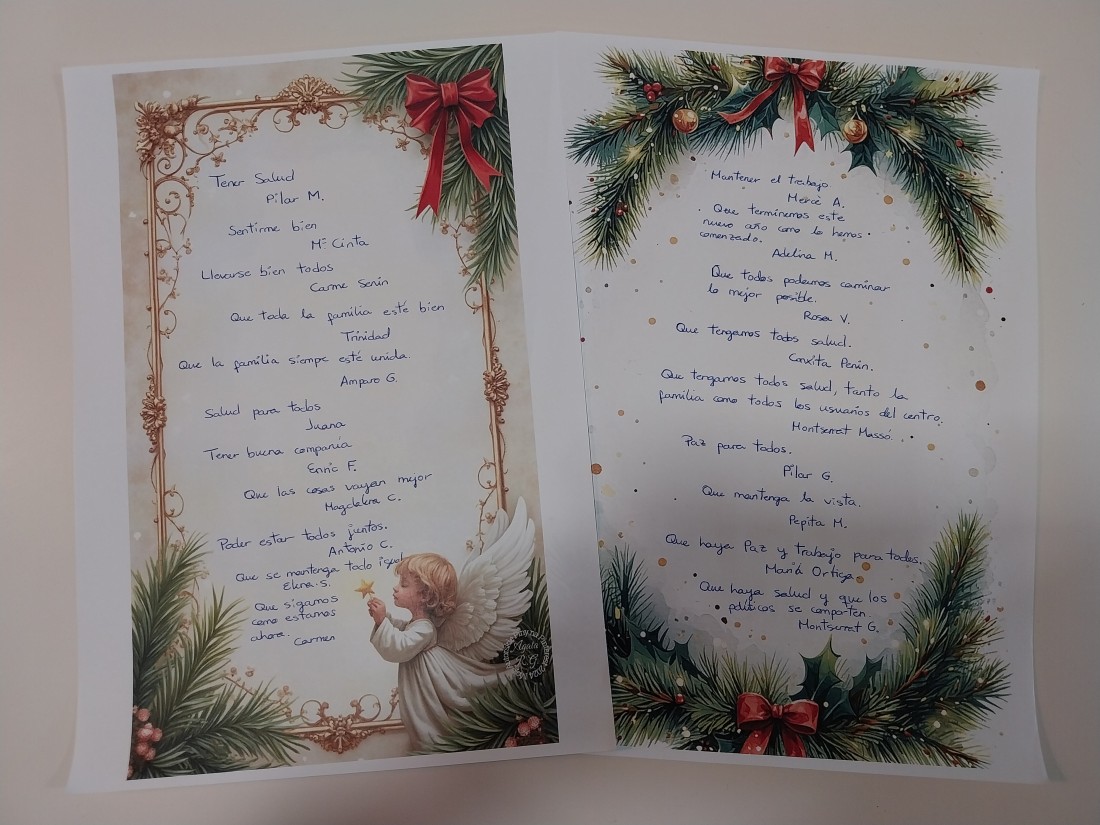 Tener Salud
Pilar M.
Sentirme bien
Mª Cinta
Llevarse bien todos
Carme Senin
Que toda la familia esté bien
Trinidad
Que la familia siempe esté unida.
Amparo G.
Salud para todos
Juana
Tener buena compañía
Enric F.
Que las cosas vayan mejor
Magdalena C.
Poder estar todos juntos.
Antonio C.
Que se mantenga todo igual
Elena S.
Que sigamos
como estamos
ahora.
Carmen
Agata
Mantener el trabajo
Mercè A.
Que terminemos este
nuevo año como lo hemos
comenzado.
Adelina M.
Que todos podamos caminar
lo mejor posible.
Rosa V.
Que tengamos todos salud.
Conxita Penin.
Que tengamos todos salud, tanto la
familia como todos los usuarios del centro.
Montserrat Massó.
Paz para todos.
Pilar G.
Que mantenga la vista.
Pepita M.
Que haya Paz y trabajo para todos.
María Ortega
Que haya salud y que los
políticos se comporten.
Montserrat G.